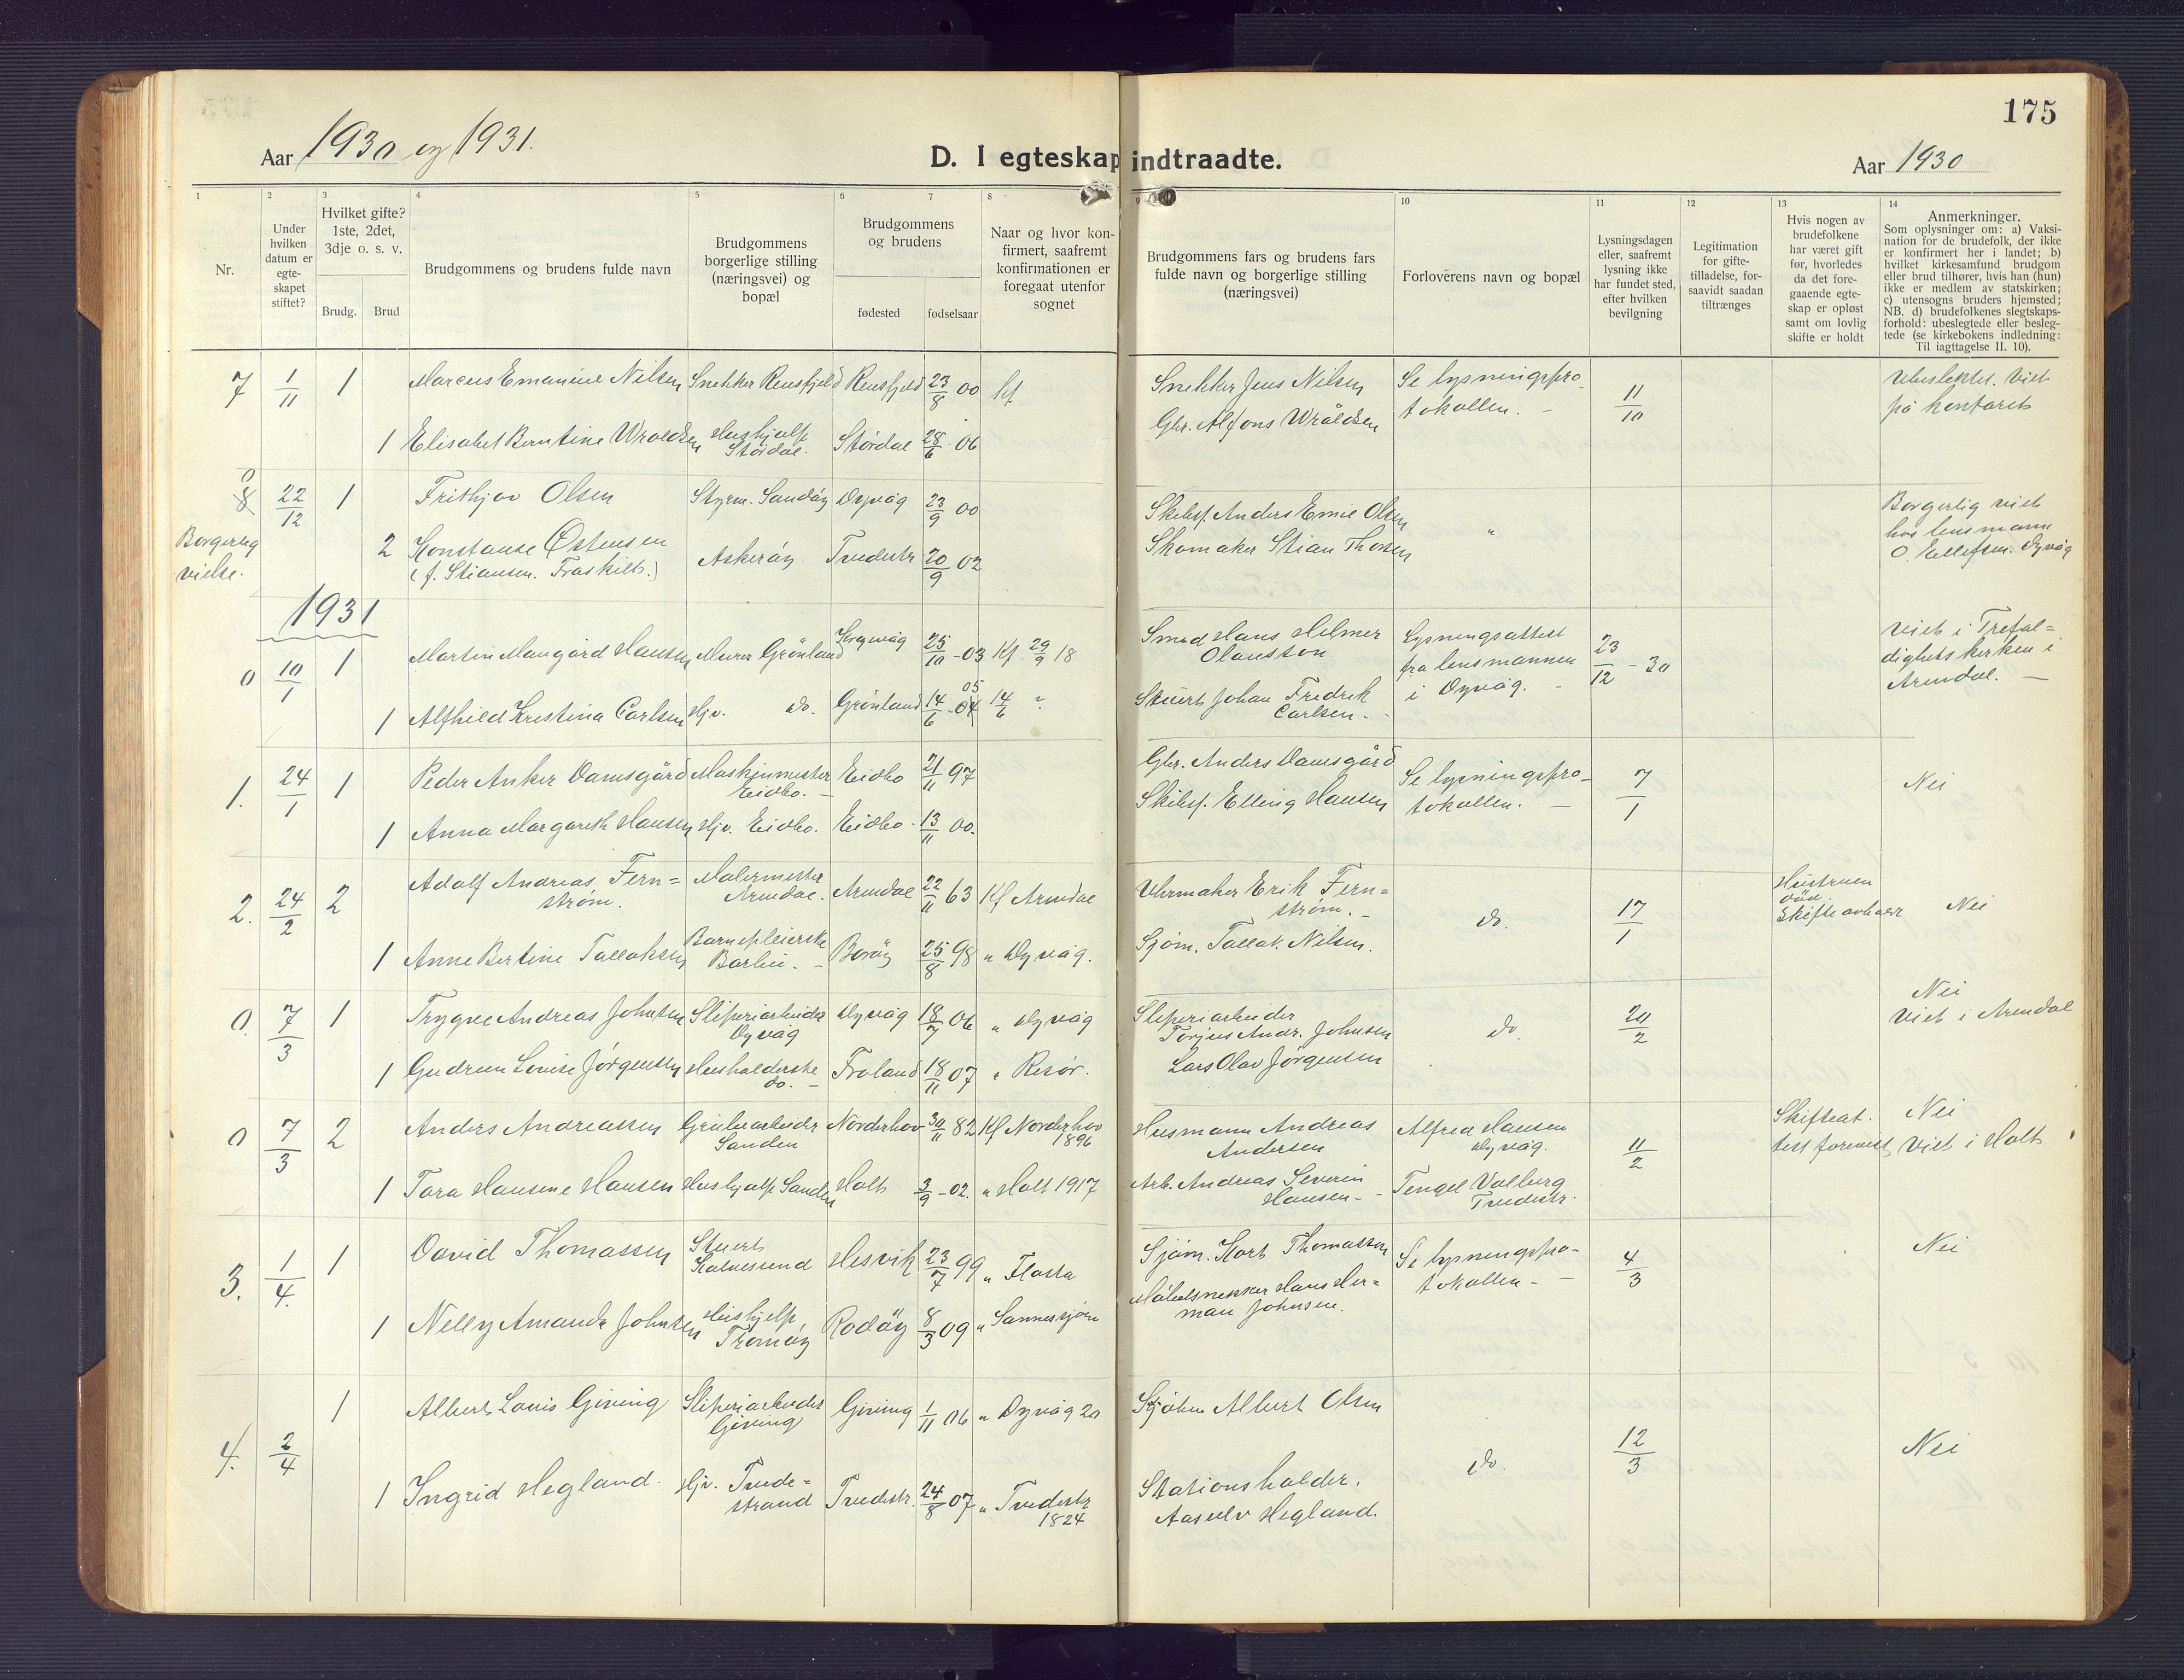 175
Aar 1930 og 1931.
D. I egteskap indtraadte.
Aar 1930
1
2
3
4
5
6
7
8
9
10
11
12
13
14
Nr.
Under hvilken datum er egte- skapet stiftet?
Hvilket gifte? 1ste, 2det, 3dje o. s. v.
Brudg.
Brud
Brudgommens og brudens fulde navn
Brudgommens borgerlige stilling (næringsvei) og bopæl
Brudgommens og brudens
fødested
fødselsaar
Naar og hvor kon- firmert, saafremt konfirmationen er foregaat utenfor sognet
Brudgommens fars og brudens fars fulde navn og borgerlige stilling (næringsvei)
Forloverens navn og bopæl
Lysningsdagen eller, saafremt lysning ikke har fundet sted, efter hvilken bevilgning
Legitimation for gifte- tilladelse, for- saavidt saadan tiltrænges
Hvis nogen av brudefolkene har været gift før, hvorledes da det fore- gaaende egte- skap er opløst samt om lovlig skifte er holdt
Anmerkninger.
Som oplysninger om: a) Vaksi- nation for de brudefolk, der ikke er konfirmert her i landet; b) hvilket kirkesamfund brudgom eller brud tilhører, hvis han (hun) ikke er medlem av statskirken; c) utensogns bruders hjemsted; NB. d) brudefolkenes slegtskaps- forhold: ubeslegtede eller besleg- tede (se kirkebokens indledning: Til iagttagelse II. 10).
7 1/11 1 Marcus Emanuel Nilsen Snekker Rensfjeld Rensfjeld 23/8 00 kf. Snekker Jens Nilsen Se lysningspro- tokollen. - 11/10 Ubeslektet. Viet på kontoret
1 Elisabet Berntine Wroldsen Hushjelp Stördal. Stördal 28/6 06 Gbr. Alfons Wråldsen
0 8 22/12 1 Frithjov Olsen Styrm. Sandöy Dyvåg 23/9 00 Skibsf. Anders Emil Olsen " Borgerlig viet hos lensmann O. Ellefsen. Dyvåg
Borgerlig vielse.
2 Konstanse Östensen (f. Stiansen. Fraskilt.) Askeröy Tvedestr 20/9 02 Skomaker Stian Thorsen
1931
0 10/1 1 Martin Mangård Hansen Murer Grönland 25/10 -03 Kf. 29/9 18 Smed Hans Hilmer Olausson Lysningsattest fra lensmannen i Dyvåg. - 23/12 - 30 Viet i Trefol= dighetskirken i Arendal. -
1 Alfhild Kristina Carlsen Hjv. do. Grönland 14/6 -04 05 14/6 Stuert Johan Fredrik Carlsen. -
1. 24/1 1 Peder Anker Damsgård Maskinmester Eidbo. - Eidbo 21/11 97 Gbr. Anders Damsgård Se lysningspro- tokollen. - 7/1 Nei
1 Anna Margareth Hansen Hjv. Eidbo. Eidbo - 13/11 00. Skibsf. Elling Hansen
2. 24/2 2 Adolf Andreas Fern= strøm. Malermester Arendal. Arendal 22/11 63 Kf Arendal Urmaker Erik Fern= strøm. - do. 17/1 Hustruen död. Skifte avholdt Nei
1 Anne Bertine Tallaksen Barnepleierske Borøy 25/8 98 " Dyvåg. Sjöm. Tallak. Nilsen.
0. 7/3 1 Trygve Andreas Johnsen Sliperiarbeider Dyvåg Dyvåg 18/7 06 " Dyvåg Sliperiarbeider Torjus Andr. Johnsen do. 20/2 Nei Viet i Arendal
1 Gudrun Lovise Jörgensen Husholderske do. - Froland 18/11 07 " Risør. Lars Olav Jörgensen
0 7/3 2 Anders Andreassen Grubearbeider Sanden Norderhov 30/11 82 Kf Norderhov 1896 Husmann Andreas Andersen Alfred Hansen Dyvåg. 11/2 Skifteat. test forevist Nei Viet i Holt
1 Tora Hansine Hansen Hushjelp Sanden Holt 3/9 -02. " Holt 1917 Arb. Andreas Severin Hansen - Tengel Valberg Tvedestr.
3. 1/4. 1 David Thomassen Stuert Kalvesund Hesvik 23/7 99 " Flosta Sjöm. Kort Thomassen Se lysningspro- tokollen - 4/3 Nei
1 Nelly Amanda Johnsen Hushjelp Tromöy Rodöy 8/3 09 " Sannessjøen Möbelsnekker Hans Her= man Johnsen.
4. 2/4 1 Albert Louis Giving Sliperiarbeider Giving Giving 1/11 06 " Dyvåg 20 Albert Olsen do. 12/3 Nei
1 Ingrid Hegland. Hjv. Tvede= strand Tvedestr. 24/8 07 " Tvedestr 1824 Stationsholder. Aasulv Hegland.